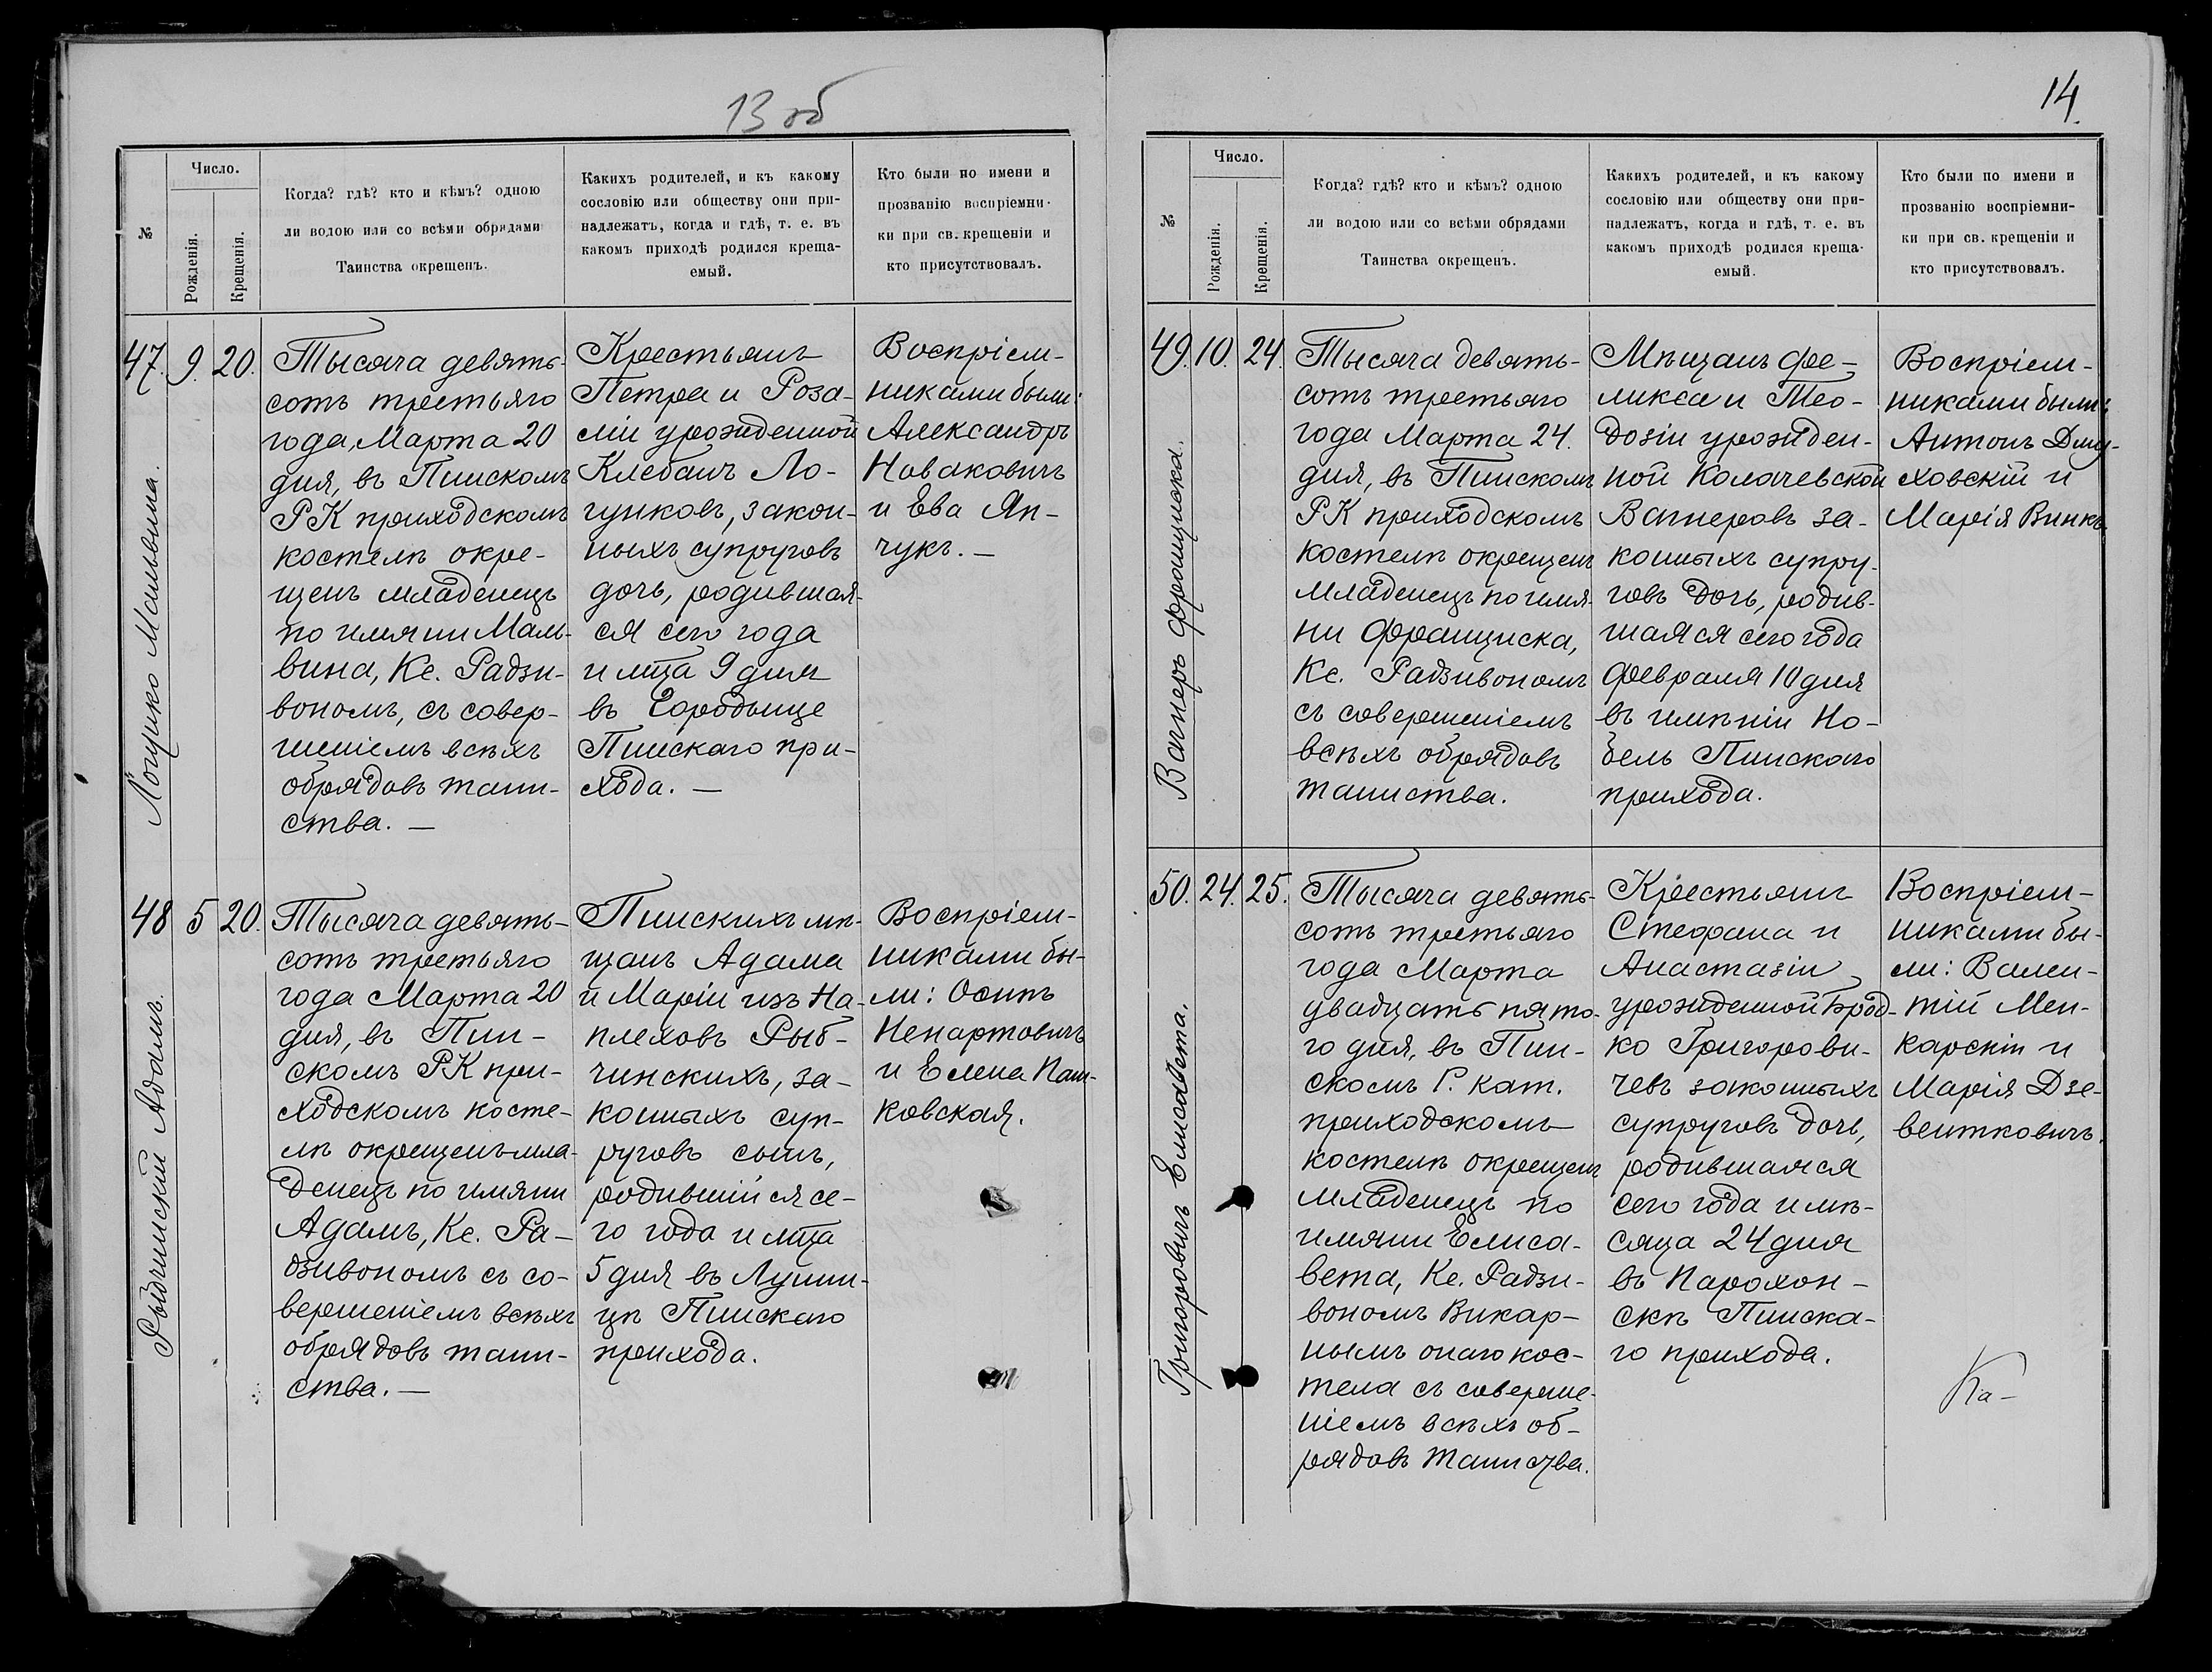 13 об
№
Число.
Рожденія.
Крещенія.
Когда? гдѣ? кто и кѣмъ? одною
ли водою или со всѣми обрядами
Таинства окрещенъ.
Какихъ родителей, и къ какому
сословію или обществу они при-
надлежатъ, когда и гдѣ, т. е. въ
какомъ приходѣ родился креща-
емый.
Кто были по имени и
прозванію воспріемни-
ки при св. крещеніи и
кто присутствовалъ.
47. 9. 20.
Лощико Мальвина.
Тысяча девять-
сотъ третьяго
года, Марта 20
дня, въ Пинскомъ
РК приходскомъ
костелѣ окре-
щенъ младенецъ
по имяни Маль-
вина, Кс. Радзи-
вономъ, съ совер-
шеніемъ всѣхъ
обрядовъ таин-
ства. —
Крестьянъ
Петра и Роза-
ліи урожденной
Клебанъ
законныхъ супруговъ
дочь, родившая-
ся сего года
и мца 9 дня
въ Городыще
Пинскаго при-
хода. —
Воспріем-
никами были:
Александръ
Новаковичъ
и Ева Ян-
чукъ. —
48 5 20.
Рыбчинскій Адамъ.
Тысяча девять-
сотъ третьяго
года Марта 20
дня, въ Пин-
скомъ РК при-
ходскомъ косте-
лѣ окрещенъ мла-
денецъ по имяни
Адамъ, Кс. Ра-
дзивономъ съ со-
вершеніемъ всѣхъ
обрядовъ таин-
ства. —
Пинскихъ мѣ-
щанъ Адама
и Маріи изъ На-
плеховъ Рыб-
чинскихъ, за-
конныхъ суп-
руговъ сынъ,
родившійся се-
го года и мца
5 дня въ Лунин-
цѣ Пинскаго
прихода.
Воспріем-
никами бы-
ли: Осипъ
Ненартовичъ
и Елена Паш-
ковская.
14.
№
Число.
Рожденія.
Крещенія.
Когда? гдѣ? кто и кѣмъ? одною
ли водою или со всѣми обрядами
Таинства окрещенъ.
Какихъ родителей, и къ какому
сословію или обществу они при-
надлежатъ, когда и гдѣ, т. е. въ
какомъ приходѣ родился креща-
емый.
Кто были по имени и
прозванію воспріемни-
ки при св. крещеніи и
кто присутствовалъ.
49. 10. 24.
Вагнеръ Францишка.
Тысяча девять-
сотъ третьяго
года Марта 24.
дня, въ Пинскомъ
РК приходскомъ
костелѣ окрещенъ
младенецъ по имя-
ни Франциска,
Кс. Радзивономъ
съ совершеніемъ
всѣхъ обрядовъ
таинства.
Мѣщанъ Фе-
ликса и Тео-
дозіи урожден-
ной Колачевской
Вагнеровъ за-
конныхъ супру-
говъ дочь, родив-
шаяся сего года
Февраля 10 дня
въ имѣніи Но-
бель Пинскаго
прихода.
Воспріем-
никами были:
Антонъ Длу-
ховскій и
Марія Винкъ
50. 24. 25.
Григоровичъ Елисавета.
Тысяча девять-
сотъ третьяго
года Марта
двадцать пято-
го дня, въ Пин-
скомъ Р. Кат.
приходскомъ
костелѣ окрещенъ
младенецъ по
имяни Елиса-
вета, Кс. Радзи-
вономъ Викар-
нымъ онаго кос-
тела съ соверше-
ніемъ всѣхъ об-
рядовъ таинства.
Крестьянъ
Стефана и
Анастазіи
урожденной Брод-
ко Григорови-
чевъ законныхъ
супруговъ дочь,
родившаяся
сего года и мѣ-
сяца 24 дня
въ Парохон-
скѣ Пинска-
го прихода.
Воспріем-
никами бы-
ли: Вален-
тій Мен-
карскій и
Марія Дзе-
вентковичъ.
Ка-